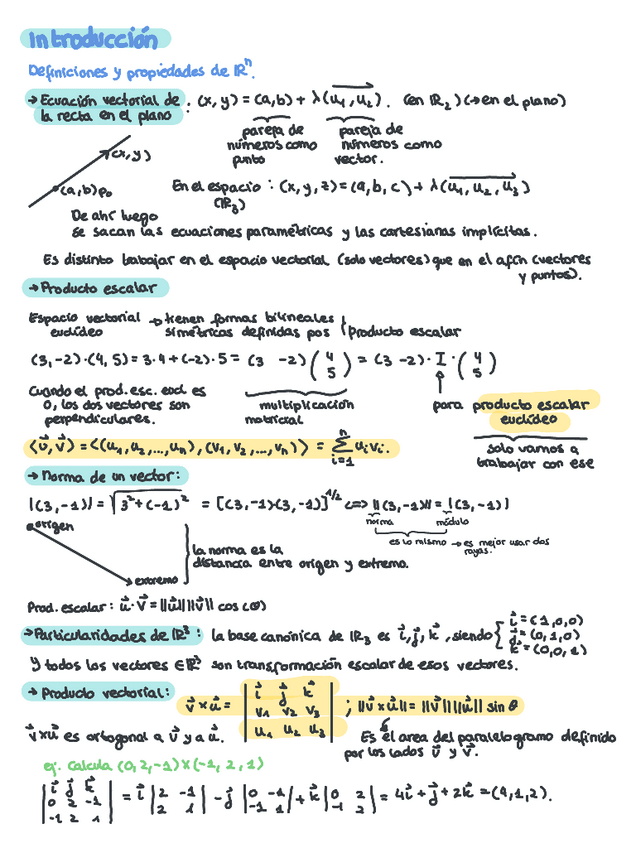 Introducción
Definiciones y propiedades de ℝⁿ.
→ Ecuación vectorial de la recta en el plano: (x,y) = (a,b) + λ(u₁,u₂). (en ℝ₂) (→ en el plano)
pareja de números como punto
pareja de números como vector.
(x,y)
(a,b) p₀
En el espacio: (x,y,z) = (a,b,c) + λ(u₁,u₂,u₃)
(ℝ₃)
De ahí luego
se sacan las ecuaciones paramétricas y las cartesianas implícitas.
Es distinto trabajar en el espacio vectorial (solo vectores) que en el afín (vectores
y puntos).
→ Producto escalar
Espacio vectorial euclídeo → tienen formas bilineales simétricas definidas pos ( producto escalar
(3,-2)·(4,5) = 3·4+(-2)·5 = (3 -2)(4 5) = (3 -2)·I·(4 5)
Cuando el prod. esc. eucl es
0, los dos vectores son
perpendiculares.
multiplicación matricial
para producto escalar euclídeo
solo vamos a trabajar con ese
⟨u⃗,v⃗⟩ = ⟨(u₁,u₂,...,uₙ),(v₁,v₂,...,vₙ)⟩ = Σⁿᵢ₌₁ uᵢvᵢ.
→ Norma de un vector:
|(3,-1)| = √3²+(-1)² = [(3,-1)(3,-1)]^1/2 <=> ||(3,-1)|| = |(3,-1)|
norma módulo
es lo mismo → es mejor usar dos rayas.
origen
extremo
la norma es la
distancia entre origen y extremo.
Prod. escalar: u⃗·v⃗ = ||u⃗||||v⃗|| cos(θ)
→ Particularidades de ℝ³: la base canónica de ℝ₃ es i⃗,j⃗,k⃗, siendo { i⃗ = (1,0,0) j⃗ = (0,1,0) k⃗ = (0,0,1)
y todos los vectores ∈ℝ³ son transformación escalar de esos vectores.
→ Producto vectorial: v⃗×u⃗ = | i⃗ j⃗ k⃗ v₁ v₂ v₃ u₁ u₂ u₃ | ; ||v⃗×u⃗|| = ||v⃗||||u⃗|| sin θ
v⃗×u⃗ es ortogonal a v⃗ y a u⃗.
Es el area del paralelogramo definido
por los lados v⃗ y v⃗.
ej: Calcula (0,2,-1)×(-1,2,1)
| i⃗ j⃗ k⃗ 0 2 -1 -1 2 1 | = i⃗ |2 -1 2 1| - j⃗ |0 -1 -1 1| + k⃗ |0 2 -1 2| = 4i⃗ + j⃗ + 2k⃗ = (4,1,2).